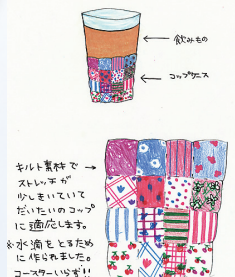 飲みもの
コップサニス
キルト素材で
ストレッチが
少しきいていて
だいたいのコップ
に適応します。
※水滴をとるため
に作られました。
コースターいらず!!